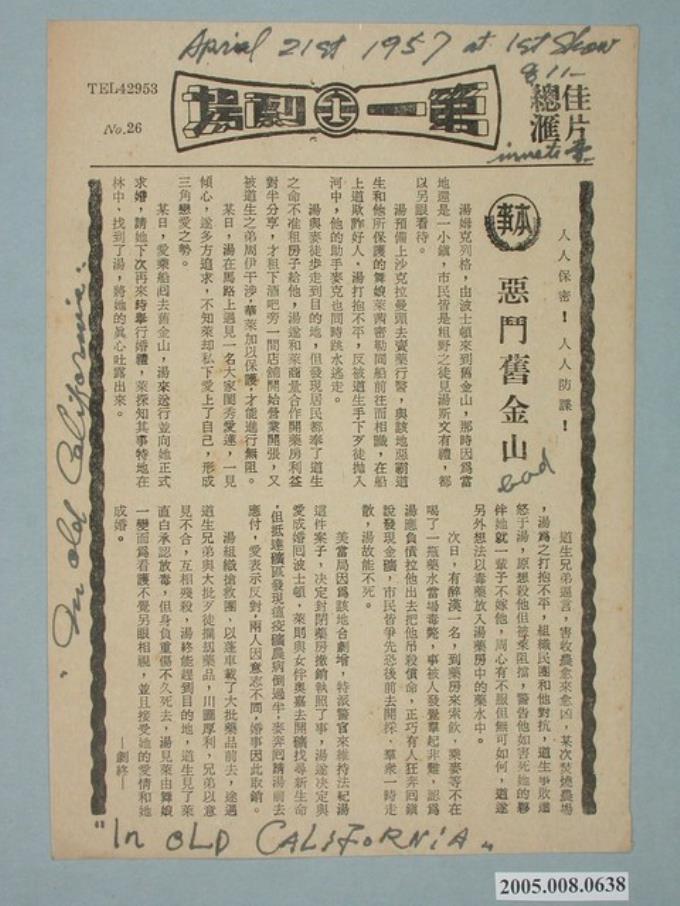 April 21st 1957 at 1st Show
8 11—
TEL42953
No.26
第一劇場
佳片
總滙
人人保密！人人防諜！
本事
惡鬥舊金山
bad
湯姆克列格，由波士頓來到舊金山，那時因爲當
地還是一小鎮，市民皆是粗野之徒見湯斯文有禮，都
以另眼看待。
湯預備上沙克拉曼頭去賣藥行醫，與該地惡霸道
生和他所保護的舞娘萊茜密勒同船前往而相識，在船
上道欺詐好人，湯打抱不平，反被道生手下歹徒拋入
河中，他的助手麥克也同時跳水逃走。
湯與麥徒步走到目的地，但發現居民都奉了道生
之命不准租房子給他，湯遂和萊商量合作開藥房利益
對半分享，才租下酒吧旁一間店舖開始營業開張，又
被道生之弟周伊干涉，華萊加以保護，才能進行無阻。
某日，湯在馬路上遇見一名大家閨秀愛蓮，一見
傾心，遂多方追求，不知萊却私下愛上了自己，形成
三角戀愛之勢。
某日，愛乘船囘去舊金山，湯來送行並向她正式
求婚，請她下次再來時舉行婚禮，萊探知其事特地在
林中，找到了湯，將她的眞心吐露出來。
道生兄弟逼言，害收農愈來愈凶，某次焚燒農場
，湯爲之打抱不平，組織民團和他對抗，道生事敗遷
怒于湯，原想殺他但被萊阻擋，警告他如害死她的夥
伴她就一輩子不嫁他，周心有不服但無可如何，道遂
另外想法以毒藥放入湯藥房中的藥水中。
次日，有醉漢一名，到藥房來索飲，乘麥等不在
喝了一瓶藥水當場毒斃，事被人發覺羣起非難，認爲
湯應負債拉他出去把他吊殺償命，正巧有人狂奔囘鎮
說發現金礦，市民皆爭先恐後前去開採，羣衆一時走
散，湯故能不死。
美當局因爲該地台劇增，特派警官來維持法紀湯
這件案子，決定封閉藥房撤銷執照了事，湯遂決定與
愛成婚囘波士頓，萊則與女伴奧嘉去開礦找尋新生命
，但抵達礦區發現這疫礦農病倒過半，麥奔囘請湯前去
應付，愛表示反對，兩人因意志不同，婚事因此取銷。
湯組織搶救團，以蓬車載了大批藥品前去，途遇
道生兄弟與大批歹徒攔刼藥品，川圖厚利，兄弟以意
見不合，互相殘殺，湯終能趕到目的地，道生見了萊
直白承認放毒，但身負重傷不久死去，湯見萊由舞娘
一變而爲看護不覺另眼相視，並且接受她的愛情和她
成婚。
——劇終——
"In old California"
"In OLD CALIFORNIA"
2005.008.0638